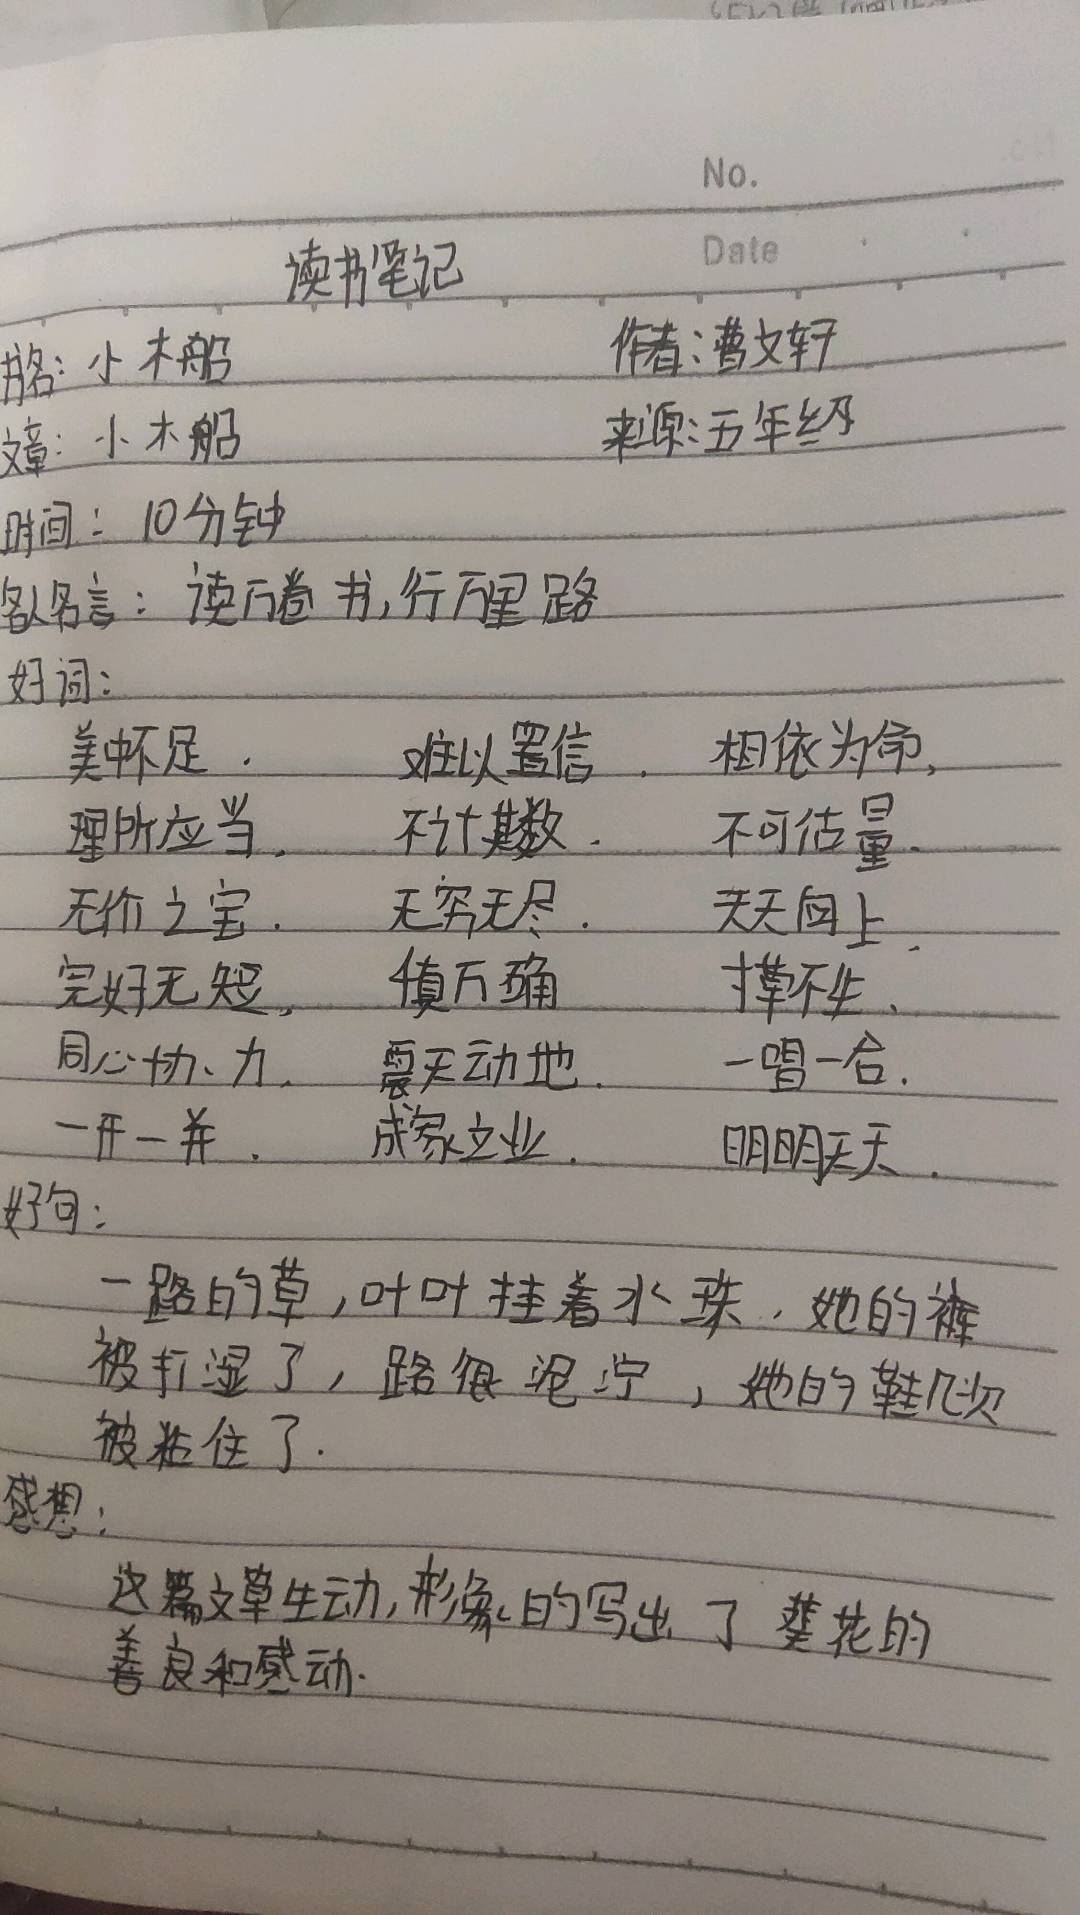 No.
读书笔记 Date
书名：小木船 作者：曹文轩
文章：小木船 来源：五年级
时间：10分钟
名人名言：读万卷书，行万里路
好词：
美中不足． 难以置信． 相依为命，
理所应当． 不计其数． 不可估量．
无价之宝． 无穷无尽． 天天向上．
完好无 万确 不生．
同心协力． 震天动地． 一唱一合．
一开一关． 成家立业． 明明天天．
好句：
一路的草，叶叶挂着水珠．她的裤
被打湿了，路很泥泞，她的鞋几次
被粘住了．
感想：
这篇文章生动，形象的写出了葵花的
善良和感动．